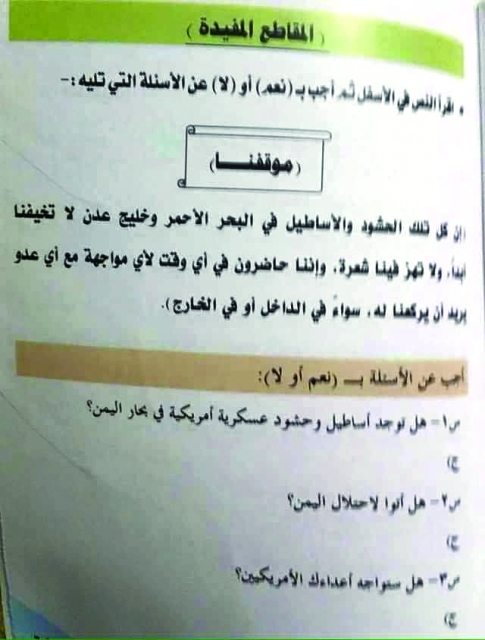 ( المقاطع المفيدة )
• اقرأ النص في الأسفل ثم أجب بـ (نعم) أو (لا) عن الأسئلة التي تليه:-
(موقفنـــا)
إن كل تلك الحشود والأساطيل في البحر الأحمر وخليج عدن لا تخيفنا
أبداً، ولا تهز فينا شعرة، وإننا حاضرون في أي وقت لأي مواجهة مع أي عدو
يريد أن يركعنا له، سواءً في الداخل أو في الخارج).
أجب عن الأسئلة بـــ (نعم أو لا):
س١- هل توجد أساطيل وحشود عسكرية أمريكية في بحار اليمن؟
ج)
س٢- هل أتوا لاحتلال اليمن؟
ج)
س٣- هل ستواجه أعداءك الأمريكيين؟
ج)